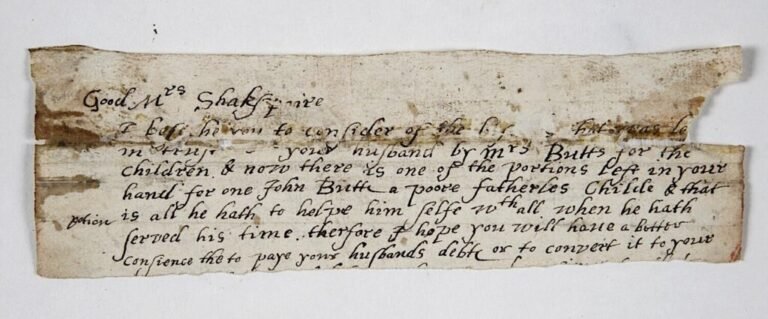 Good Mrs Shakspaire
I bese he you to consider of the that was le
in trus your husband by Mrs Butts for the
Children & now there is one of the portions left in your
hand for one John Butte a poore fatherles Childe & that
potion is all he hath to helpe him selfe wthall when he hath
served his time therfore I hope you will have a better
Consience the to paye your husbands debte or to convert it to your